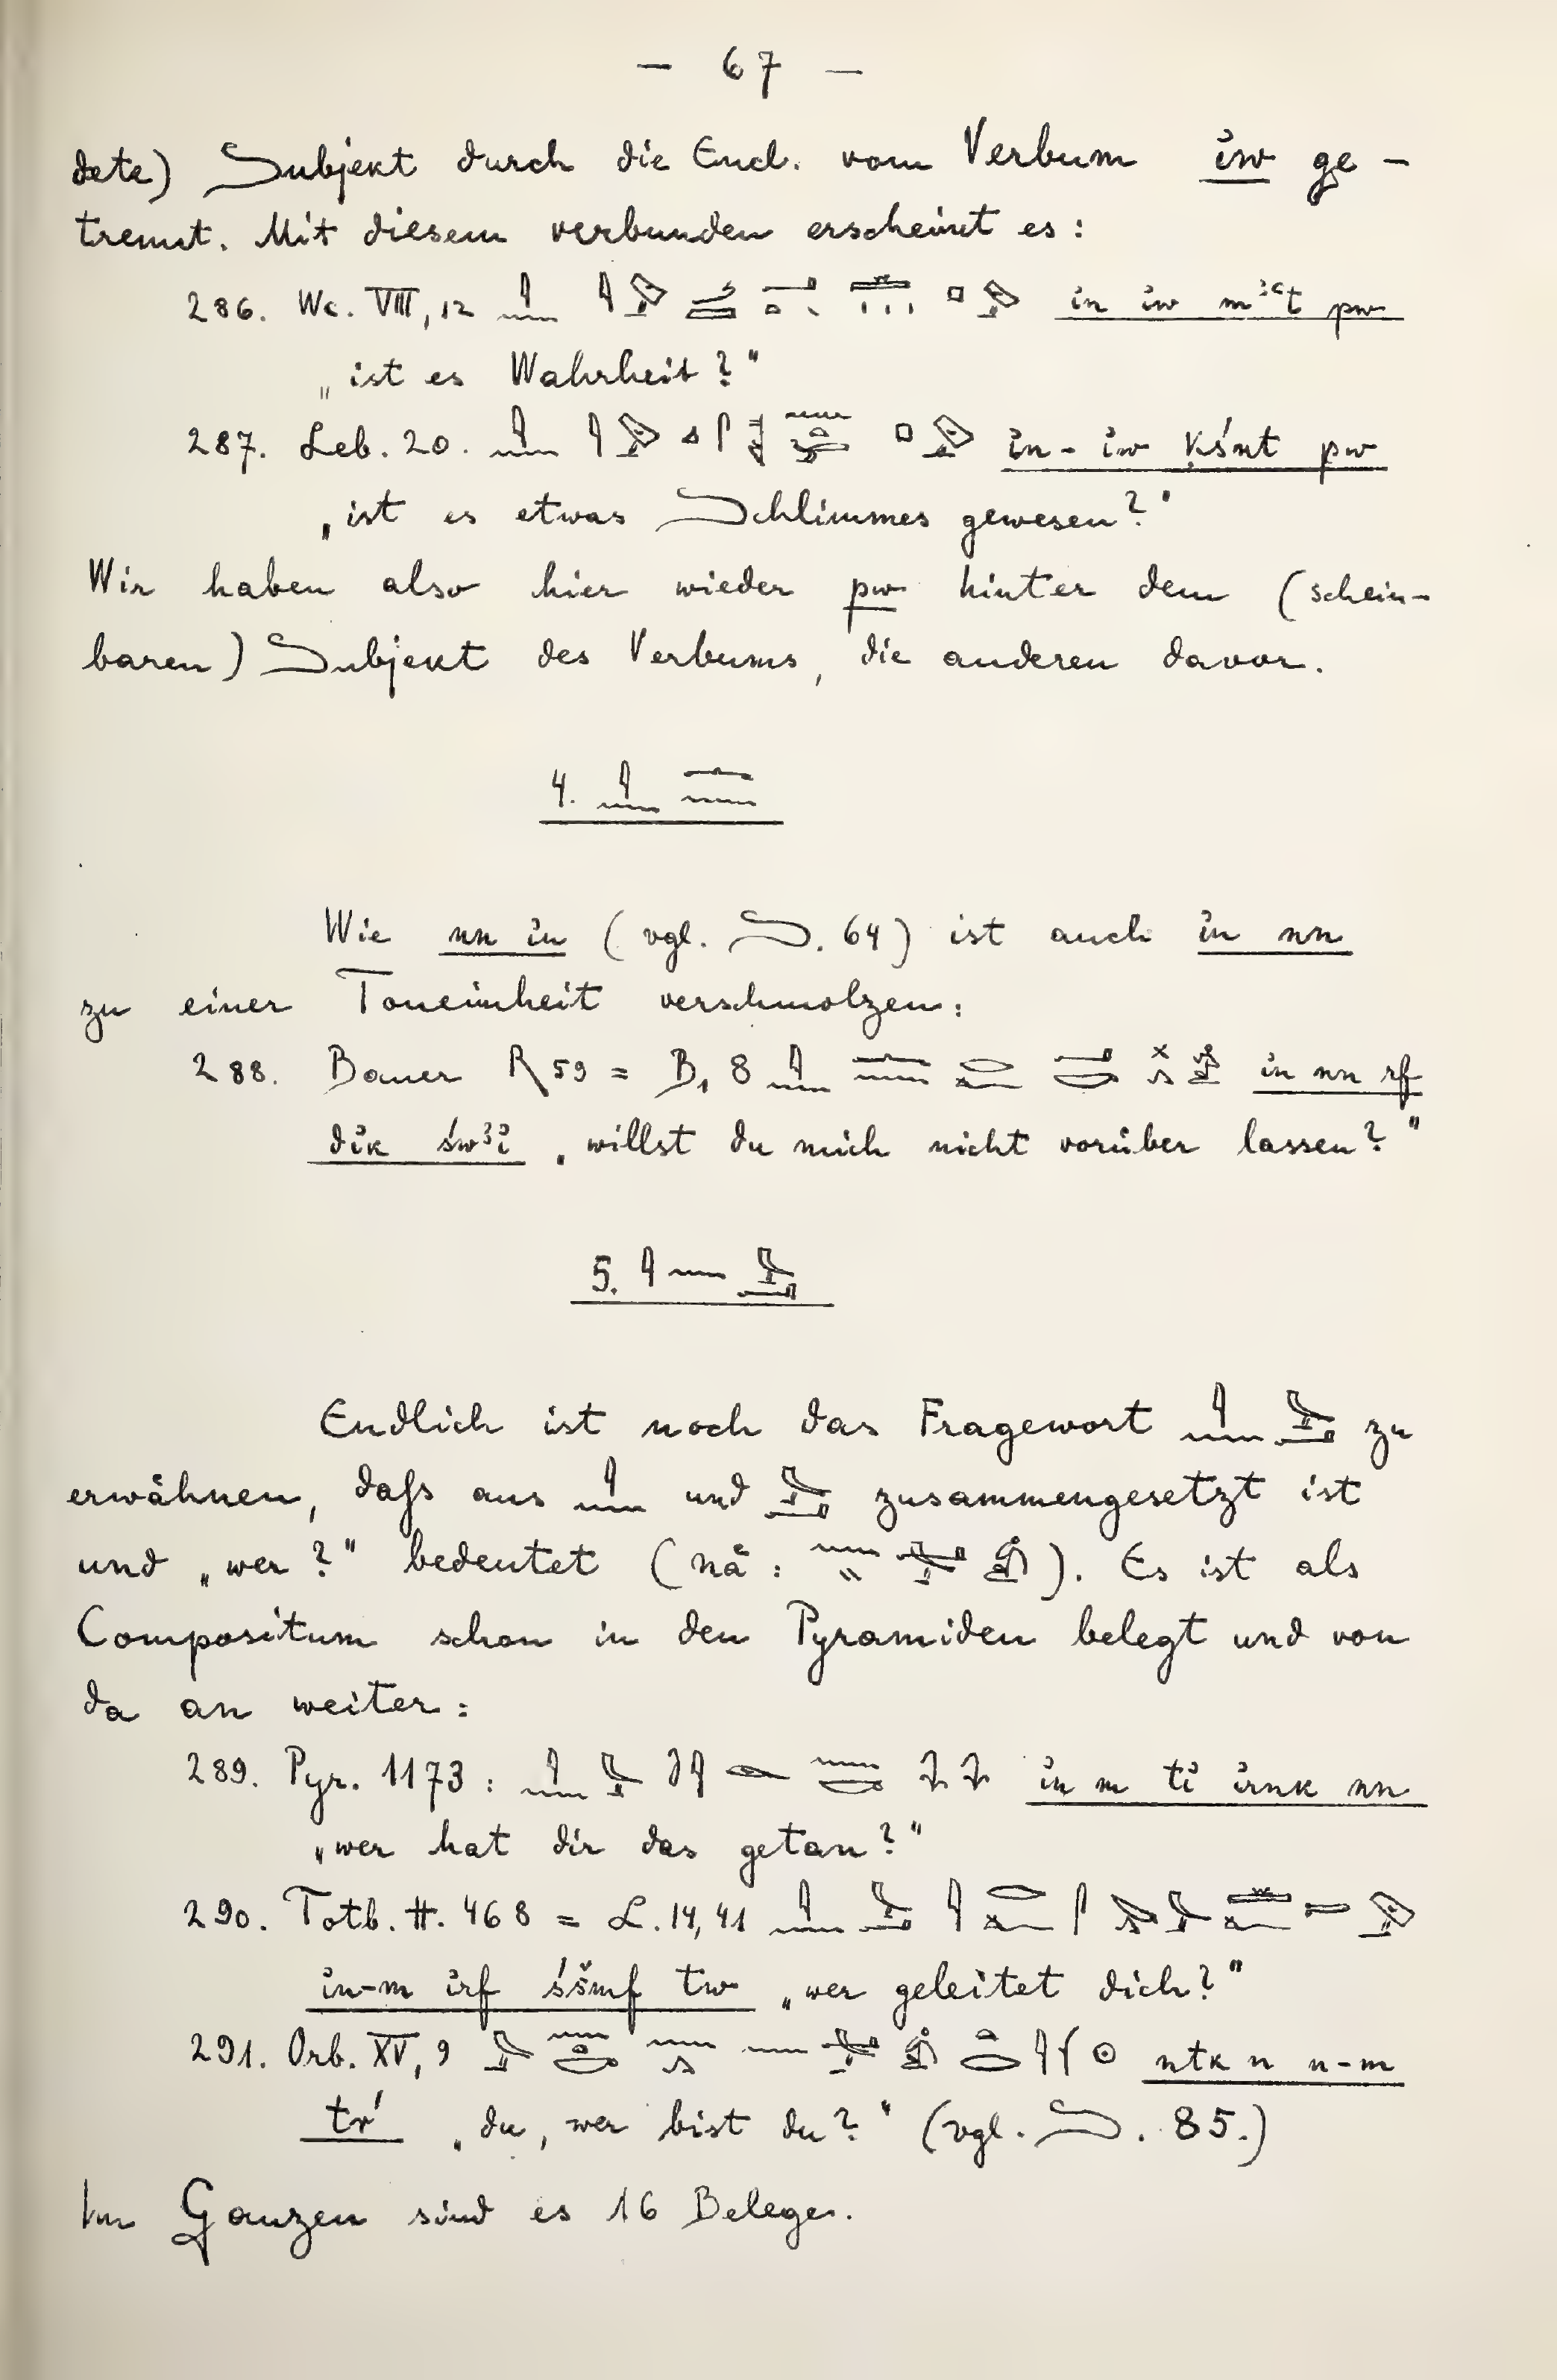 — 67 —
dete) Subjekt durch die Encl. vom Verbum iw ge-
trennt. Mit diesem verbunden erscheint es:
286. We. VIII, 12 in iw mꜣꜥt pw
„ist es Wahrheit?"
287. Leb. 20. in-iw ḳśnt pw
„ist es etwas Schlimmes gewesen?"
Wir haben also hier wieder pw hinter dem (schein-
baren) Subjekt des Verbums, die anderen davor.
4.
Wie nn in (vgl. S. 64) ist auch in nn
zu einer Toneinheit verschmolzen:
288. Bauer R 59 = B₁ 8 in nn rf
dik św ꜣi „willst du mich nicht vorüber lassen?"
5.
Endlich ist noch das Fragewort zu
erwähnen, daſs aus und zusammengesetzt ist
und „wer?" bedeutet (nä: ). Es ist als
Compositum schon in den Pyramiden belegt und von
da an weiter:
289. Pyr. 1173: in m ti irnk nn
„wer hat dir das getan?"
290. Totb. 468 = L. 14, 41
in-m irf śšmf tw „wer geleitet dich?"
291. Orb. XV, 9 ntk n n-m
tr' „du, wer bist du?" (vgl. S. 85.)
Im Ganzen sind es 16 Belege.